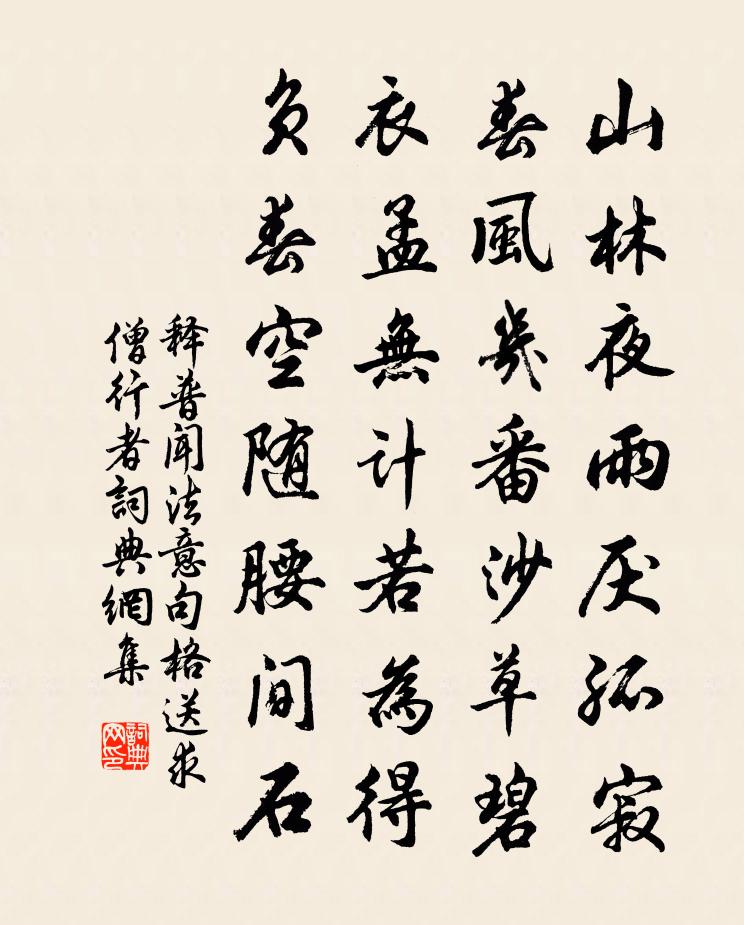 山林夜雨厌孤寂
春風幾番沙草碧
衣盂無計若為得
負春空随腰間石
释普闻法意句格送求
僧行者詞典網集
詞典网印